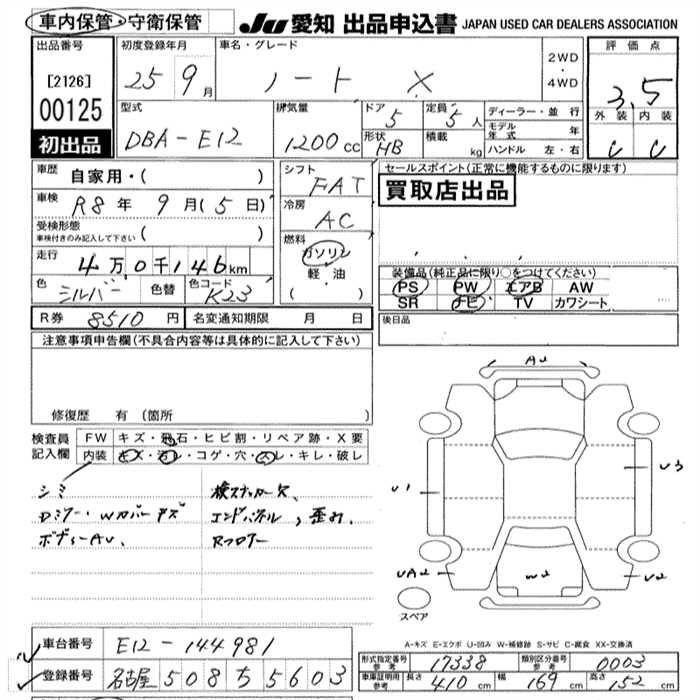 車内保管・守衛保管
JU 愛知 出品申込書 JAPAN USED CAR DEALERS ASSOCIATION
出品番号
[2126]
00125
初出品
初度登録年月
25 9月
車名・グレード
ノート X
2WD
・
4WD
評価点
3.5
外装 内装
C C
型式
DBA-E12
排気量
1200cc
ドア 5
定員 5人
形状 HB
積載 kg
ディーラー・並行
モデル年式 年
ハンドル 左・右
車歴 自家用・( )
車検 R8年 9月(5日)
受検形態
車検付きのみ記入して下さい ( )
走行 4万0千146km
色 シルバー 色替 色コード K23
シフト FAT
冷房 AC
燃料
ガソリン
軽・油
( ・ )
セールスポイント(正常に機能するものに限ります)
買取店出品
装備品(純正品に限り○をつけてください)
PS PW エアB AW
SR ナビ TV カワシート
R券 8510円 名変通知期限 月 日
後日品
注意事項申告欄(不具合内容等は具体的に記入して下さい)
修復歴 有(箇所 )
検査員記入欄
FW キズ・飛石・ヒビ割・リペア跡・X要
内装 キズ・汚レ・コゲ・穴・スレ・キレ・破レ
シミ
Dミラー・Wカバーキズ
ボディーAU、
検ステッカー欠
エンドパネル、歪み、
Rフロアー
AU
U1
U3
UA2
W2
U2
スペア
A-キズ E-エクボ U-凹み W-補修跡 S-サビ C-腐食 XX-交換済
車台番号 E12-144981
登録番号 名古屋 508 ち 5603
形式指定番号 参考 17338 類別区分番号 参考 0003
車庫証明用 参考 長さ 410cm 幅 169cm 高さ 152cm